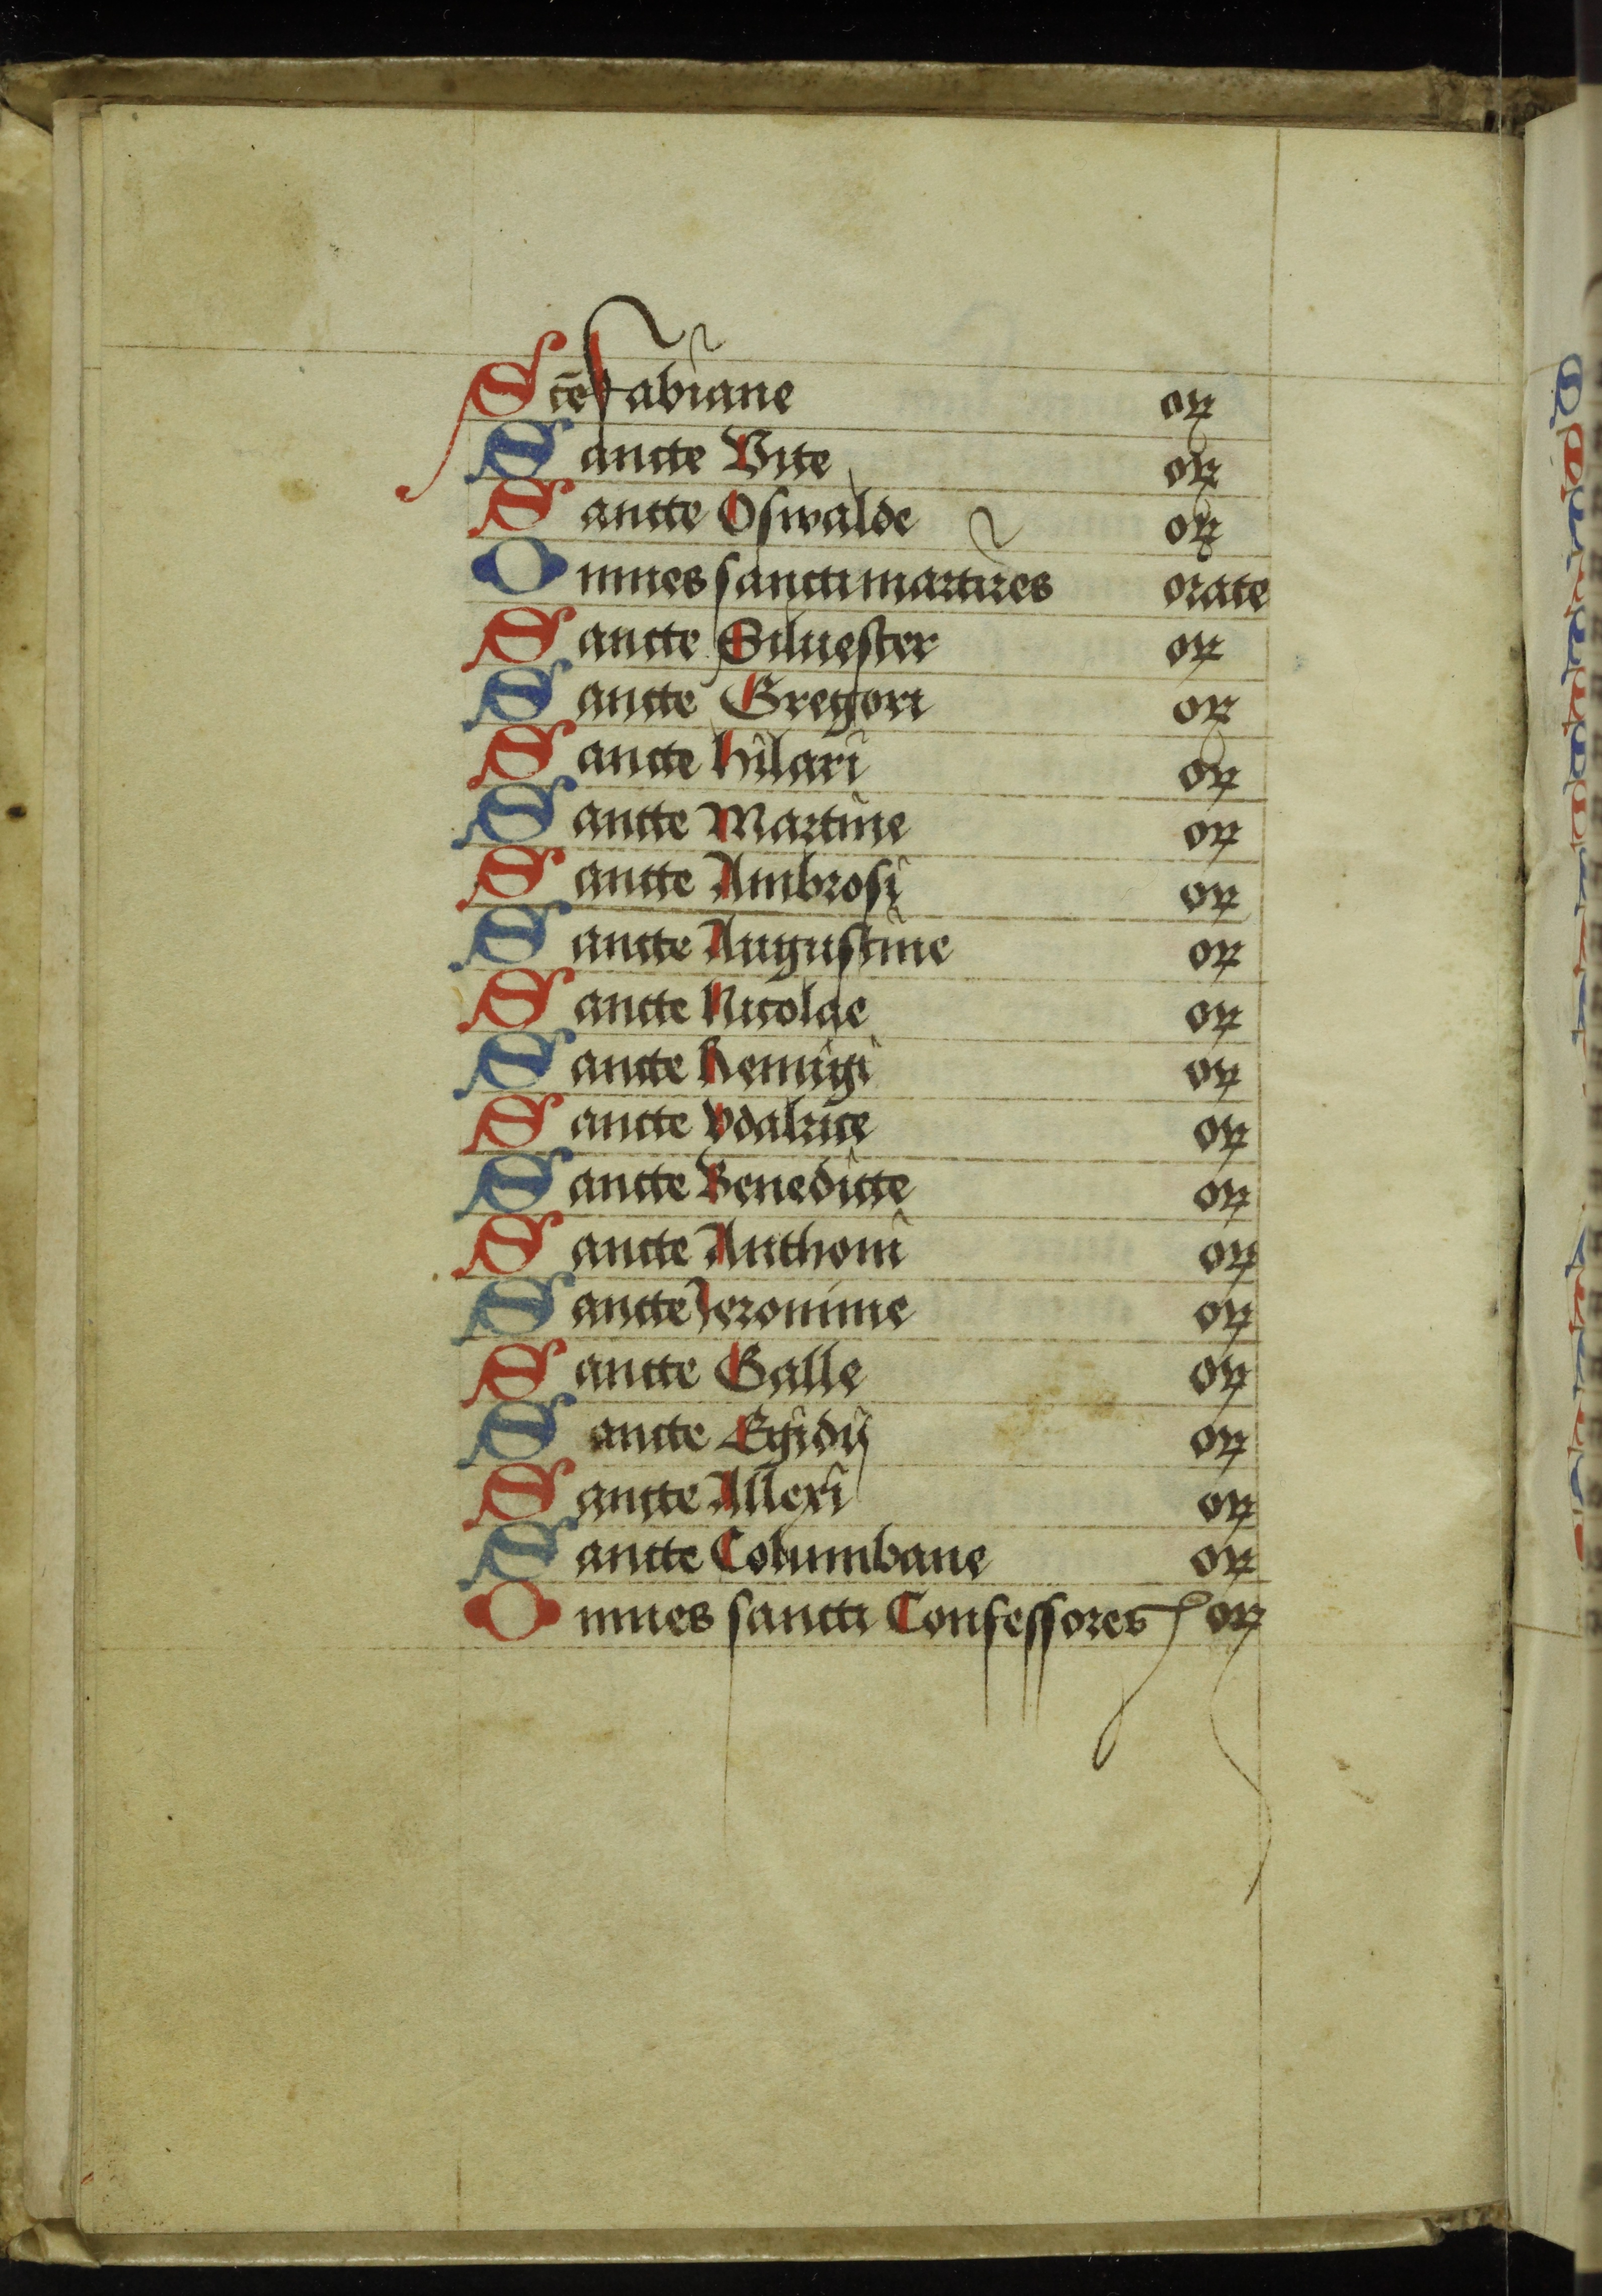 Sctē Fabiane oꝝ
Sancte Vite oꝝ
Sancte Oswalde oꝝ
Omnes sancti martires orate
Sancte Siluester oꝝ
Sancte Gregori oꝝ
Sancte hilari oꝝ
Sancte Martine oꝝ
Sancte Ambrosi oꝝ
Sancte Augustine oꝝ
Sancte Nicolae oꝝ
Sancte Remigi oꝝ
Sancte Vdalrice oꝝ
Sancte Benedicte oꝝ
Sancte Anthoni oꝝ
Sancte Jeronime oꝝ
Sancte Galle oꝝ
Sancte Egidij oꝝ
Sancte Allexi oꝝ
Sancte Columbane oꝝ
Omnes sancti Confessores oꝝ